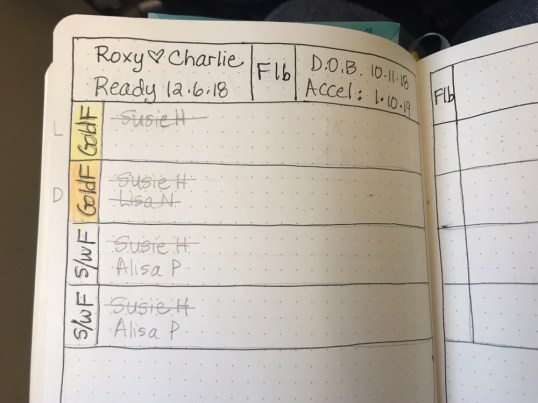 Roxy ♡ Charlie
Ready 12·6·18
Flb
D.O.B. 10·11·18
Accel: 1·10·19
L
GoldF
Susie H
D
GoldF
Susie H
Lisa N
S/w F
Susie H
Alisa P
S/w F
Susie H
Alisa P
Flb